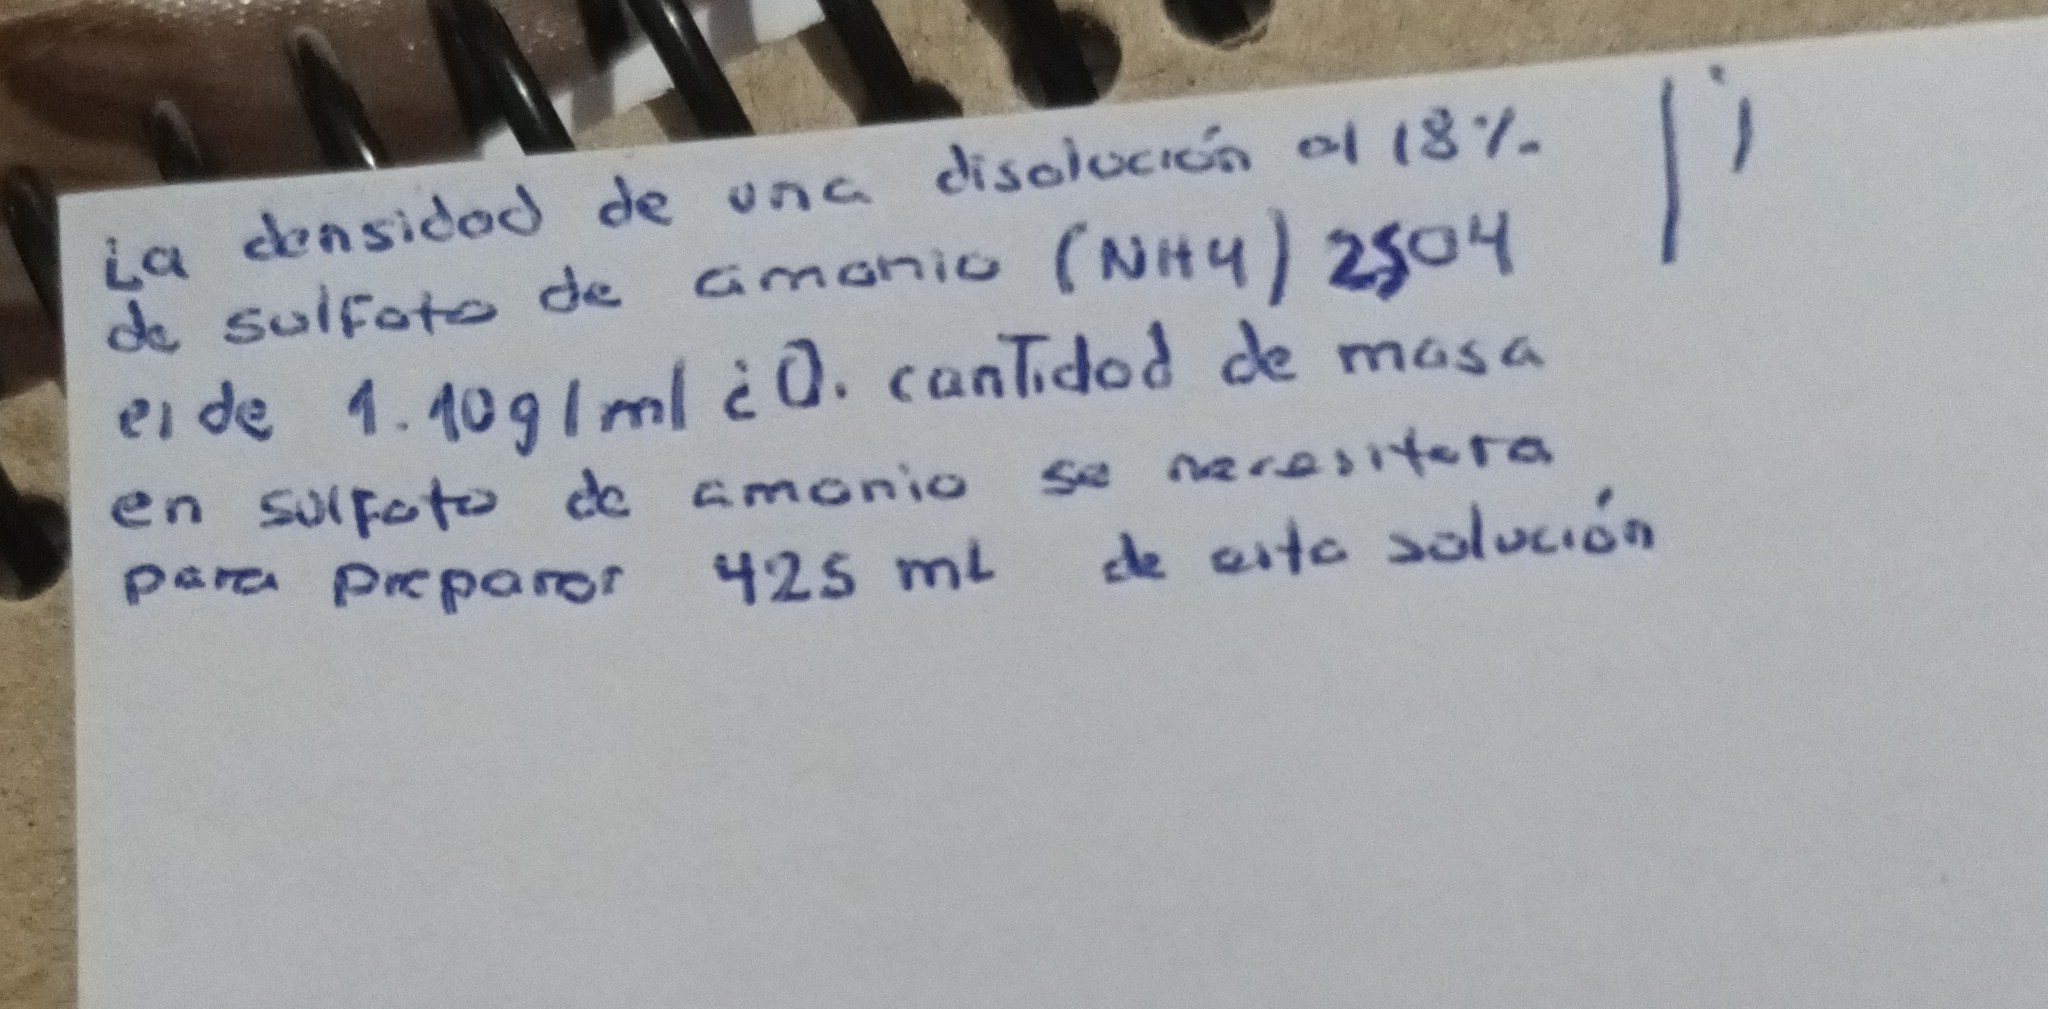 La densidad de una disolución al 18%.
de sulfato de amonio (NH4) 2SO4
es de 1.10g/ml ¿Q. cantidad de masa
en sulfato de amonio se necesitara
para preparar 425 mL de esta solución